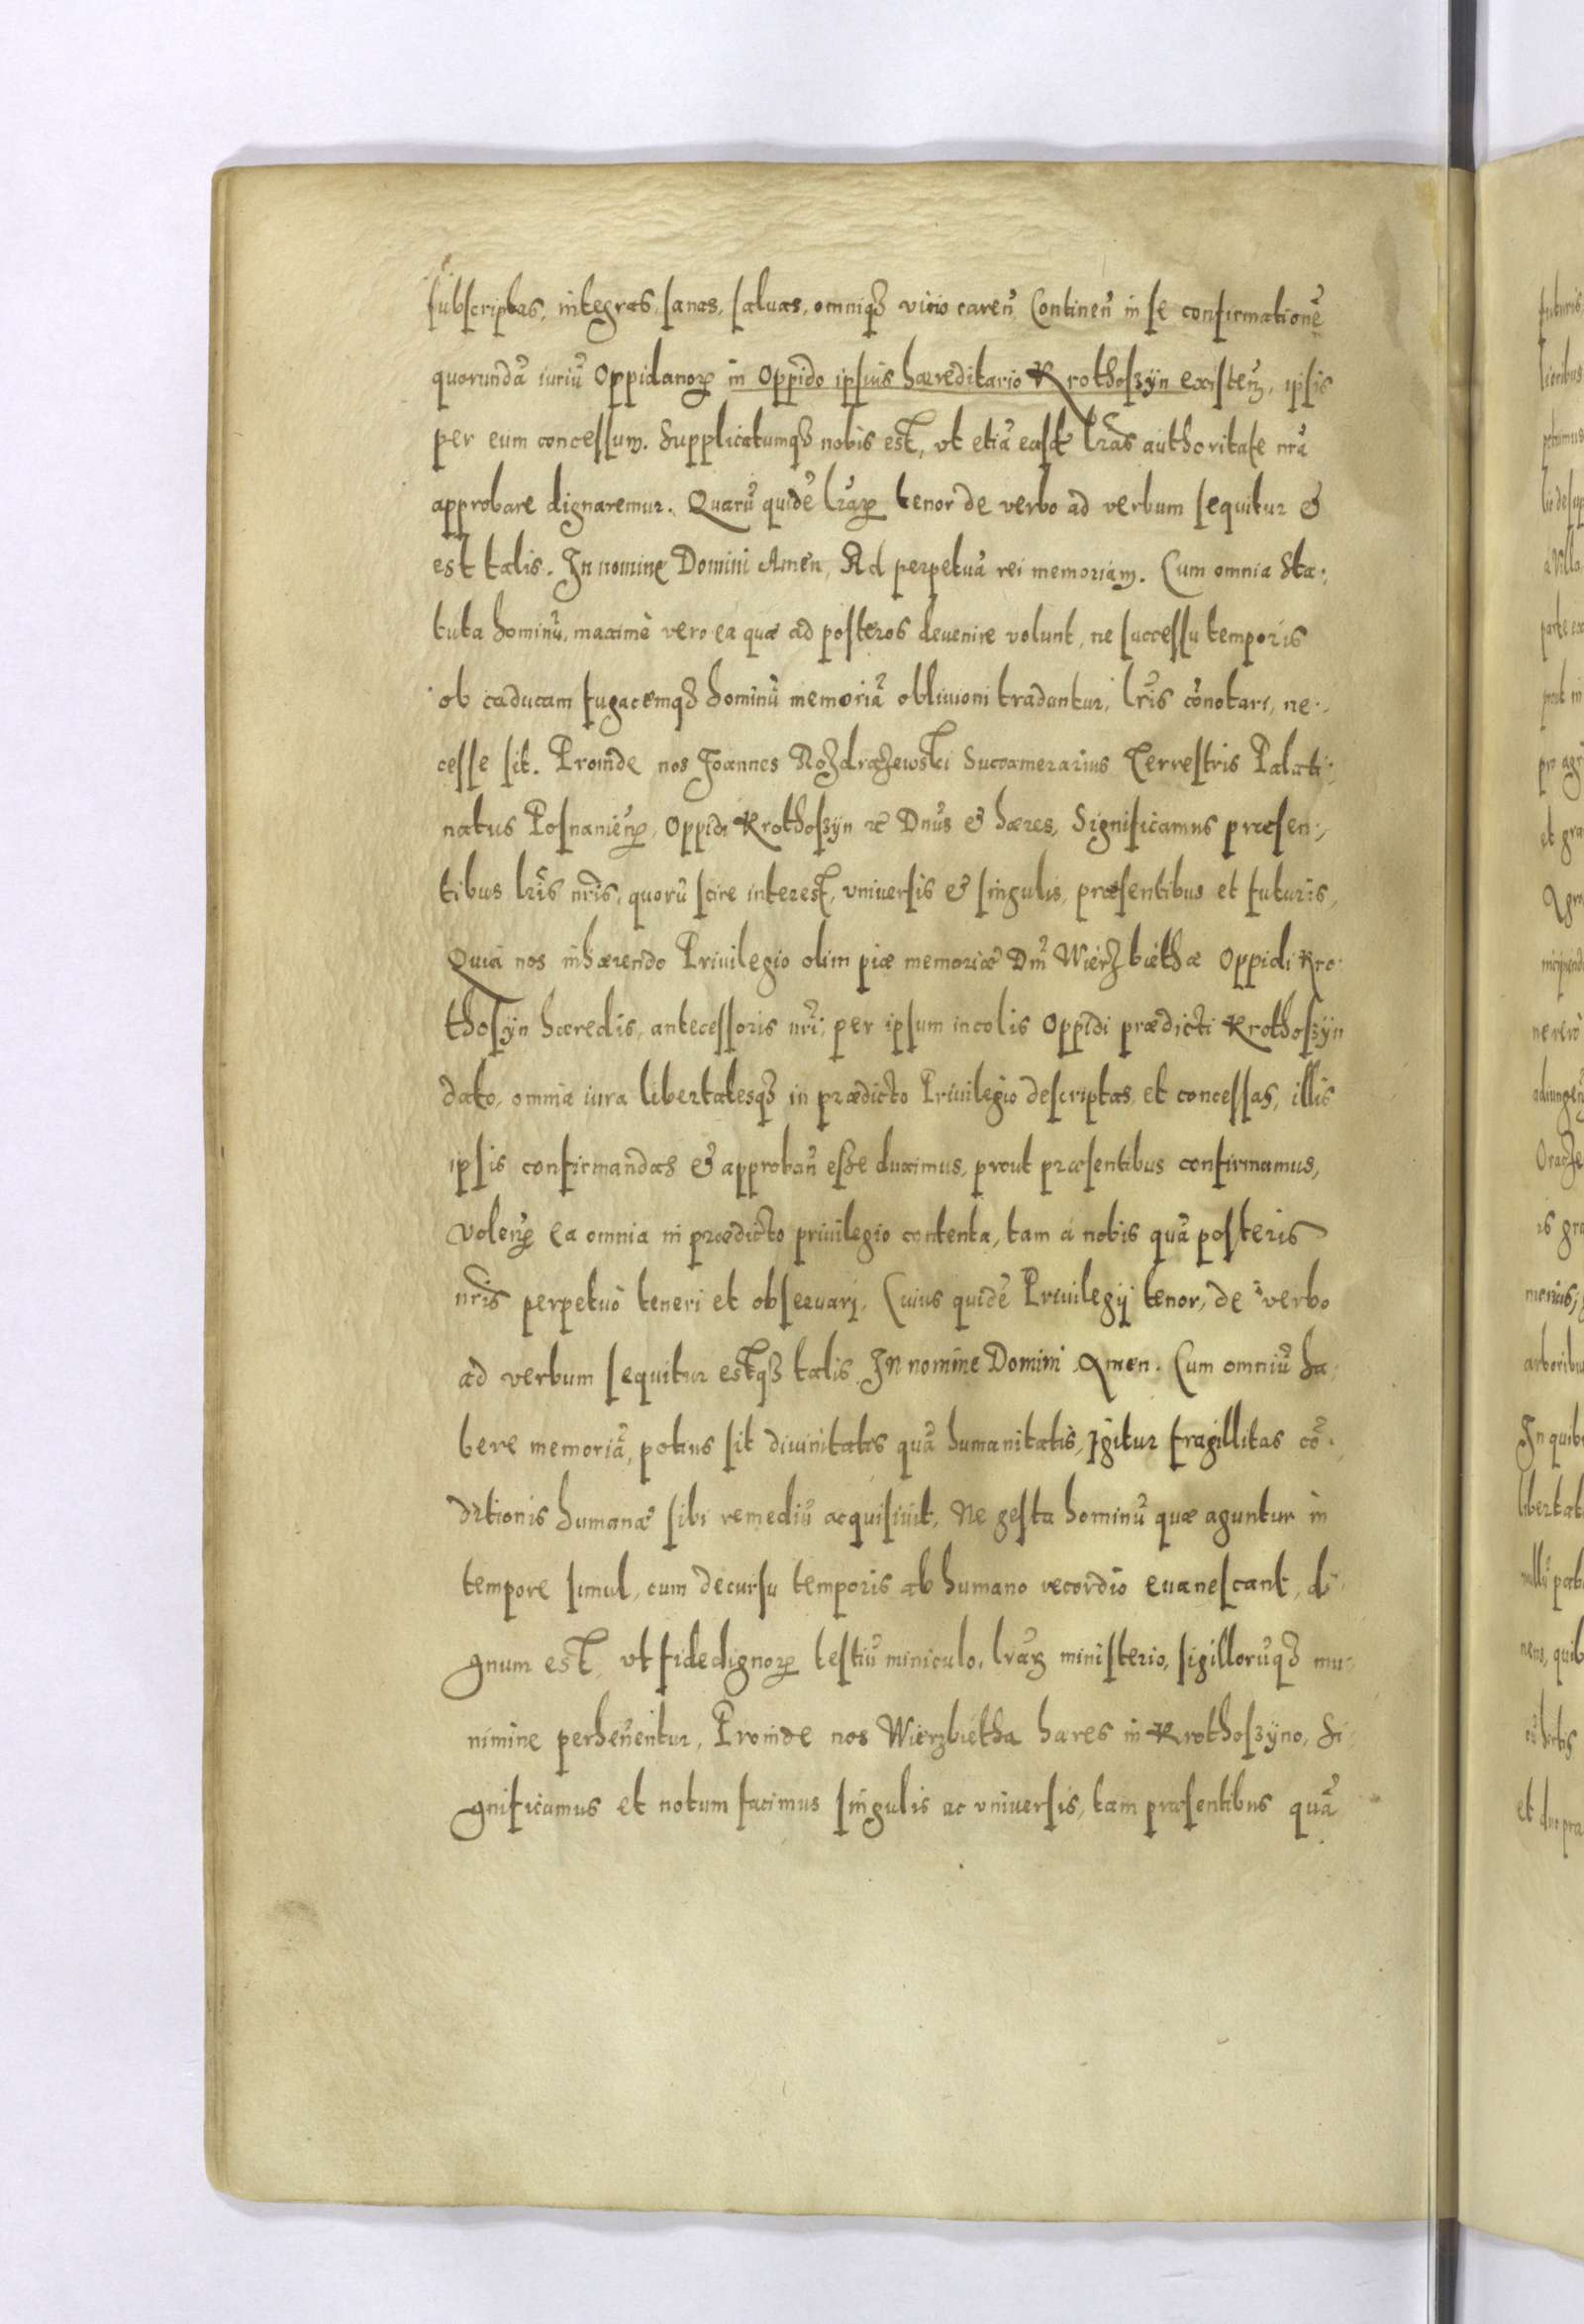 subscriptas, integras, sanas, saluas, omniq₃ vitio careñ. Contineñ in se confirmationẽ
quorundã iuriũ Oppidanoꝝ in Oppido ipsius hæreditario Krothoszÿn existeñ, ipsis
per eum concessum. Supplicatumq₃ nobis est, vt etiã easd lr̃as authoritate nr̃a
approbare dignaremur. Quarũ quidẽ lr̃aꝝ tenor de verbo ad verbum sequitur &
est talis. In nomine Domini Amen, Ad perpetuã rei memoriam. Cum omnia Sta:
tuta hominũ, maximè vero ea quæ ad posteros deuenire volunt, ne successu temporis
ob caducam fugacemq₃ hominũ memoriã obliuioni tradantur, lr̃is cõnotari, ne:
cesse sit. Proinde nos Joannes Rozdrazewski Succamerarius Terrestris Palati:
natus Posnanieñ, Oppidi Krothoszÿn &c Dnũs & hæres, Significamus præsen:
tibus lr̃is nr̃is, quorũ scire interest, vniuersis & singulis, præsentibus et futuris,
Quia nos inhærendo Priuilegio olim piæ memoriæ Dni Wierzbiethæ Oppidi Kro:
thosÿn hæredis, antecessoris nr̃i, per ipsum incolis Oppidi prædicti Krothoszÿn
dato, omnia iura libertatesq₃ in prædicto Priuilegio descriptas et concessas, illis
ipsis confirmandas & approbañ esse duximus, prout præsentibus confirmamus,
Voleñ ea omnia in prædicto priuilegio contenta, tam à nobis quã posteris
nr̃is perpetuò teneri et obseruari. Cuius quidẽ Priuilegij tenor, de verbo
ad verbum sequitur estq₃ talis. In nomine Domini Amen. Cum omniũ ha:
bere memoriã, potius sit diuinitatis quã humanitatis, Igitur fragillitas cõ:
ditionis humanæ sibi remediũ acquisiuit, Ne gesta hominũ quæ aguntur in
tempore simul, cum decursu temporis ab humano recordio euanescant, di:
gnum est, vt fidedignoꝝ testiũ miniculo, lr̃aꝝ ministerio, sigillorũq₃ mu:
nimine perhenentur, Proinde nos Wierzbietha hæres in Krothoszÿno, Si:
gnificamus et notum facimus singulis ac vniuersis, tam præsentibus quã